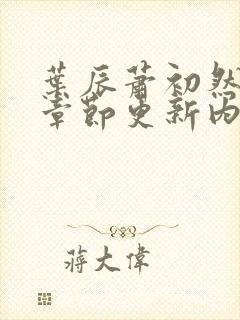 葉辰蕭初然
章節更新內
蔣大偉